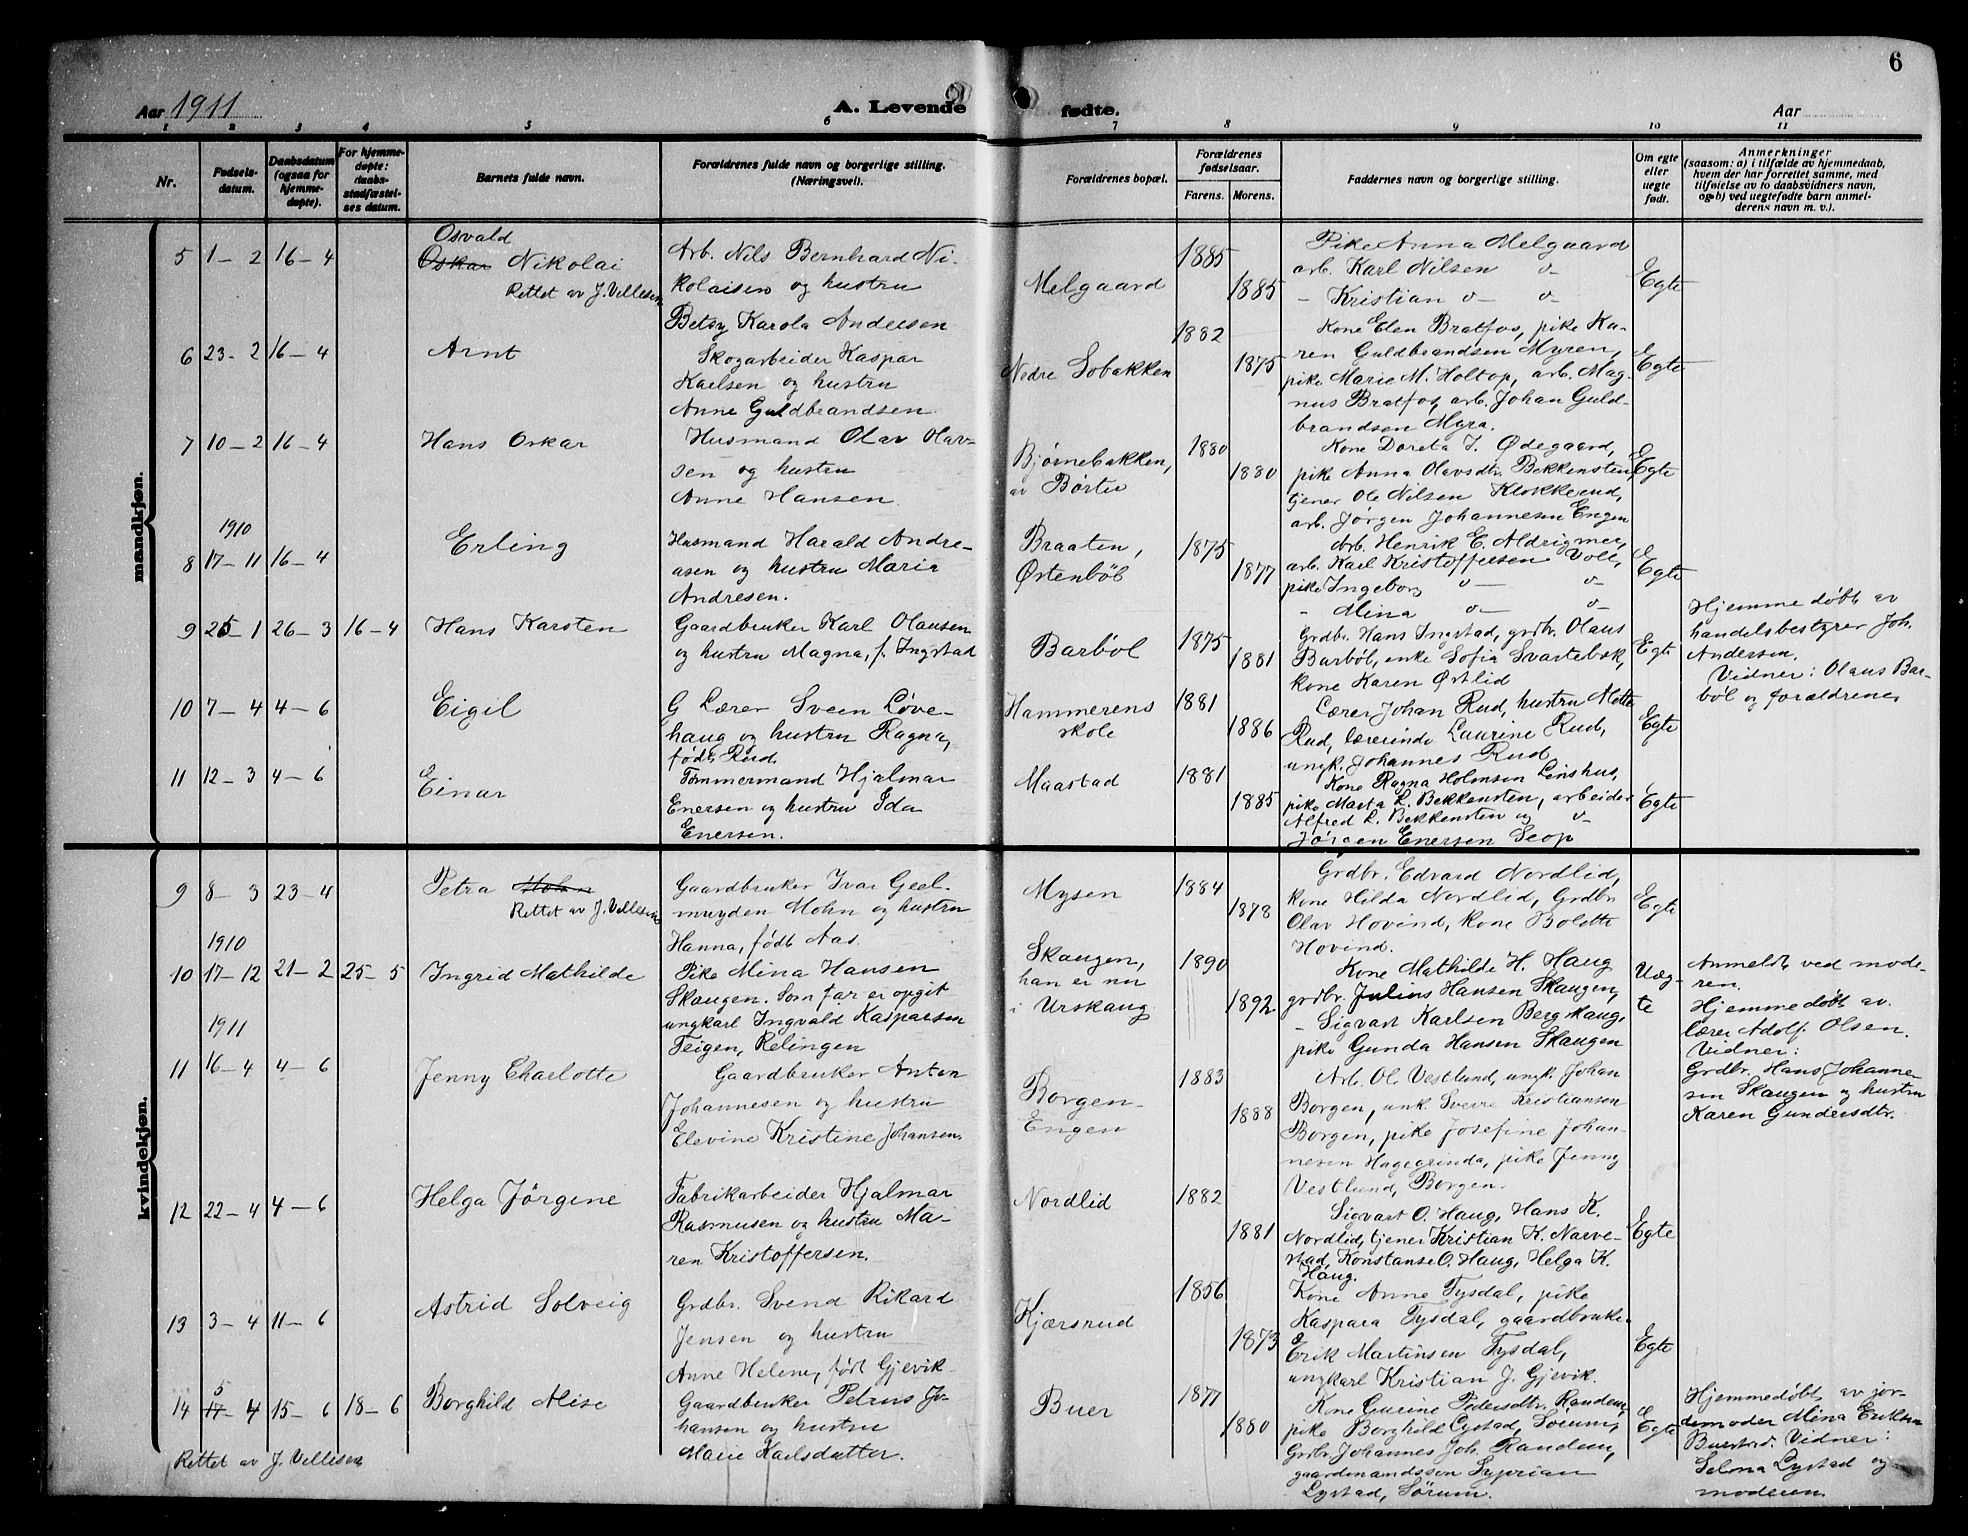 6
Aar 1911
A. Levende fødte.
Aar
1 2 3 4 5 6 7 8 9 10 11
Nr.
Fødsels-
datum.
Daabsdatum
(ogsaa for
hjemme-
døpte).
For hjemme-
døpte:
daabs-
stadfæstel-
ses datum.
Barnets fulde navn.
Forældrenes fulde navn og borgerlige stilling.
(Næringsvei).
Forældrenes bopæl.
Forældrenes
fødselsaar.
Farens. Morens.
Faddernes navn og borgerlige stilling.
Om egte
eller
uegte
født.
Anmerkninger
(saasom: a) i tilfælde av hjemmedaab,
hvem der har forrettet samme, med
tilføielse av to daabsvidners navn,
og b) ved uegtefødte barn anmel-
derens navn m. v.).
mandkjøn.
5 1-2 16-4
Osvald
Oskar Nikolai
Rettet av J. Vellesen
Arb. Nils Bernhard Ni-
kolaisen og hustru
Betsy Karola Andersen
Melgaard
1885
1885
Pike Anna Melgaard
arb. Karl Nilsen o-
- Kristian o- o-
Egte
6 23-2 16-4
Arnt
Skogarbeider Kaspar
Karlsen og hustru
Anne Guldbrandsen
Nedre Sobakken
1882
1875
Kone Elen Bratfos, pike Ka-
ren Guldbrandsen Myren,
pike Marie M. Holtop, arb. Mag-
nus Bratfos, arb. Johan Guld-
brandsen Myra.
Egte
7 10-2 16-4
Hans Oskar
Husmand Olav Olav-
sen og hustru
Anne Hansen
Bjørnebakken,
av Børter
1880
1880
Kone Doreta J. Ødegaard,
pike Anna Olavsdtr. Bekkensten,
tjener Ole Nilsen Klokkerud,
arb. Jørgen Johannesen Engen
Egte
1910
8 17-11 16-4
Erling
Husmand Harald Andre-
asen og hustru Maria
Andresen.
Braaten,
Østenbøb
1875
1877
Arb. Henrik E. Aldrigmer,
arb. Karl Kristoffersen Voll,
pike Ingeborg o- o-
- Mina o- o-
Egte
9 25-1 26-3 16-4
Hans Karsten
Gaardbruker Karl Olausen
og hustru Magna, f. Ingstad
Barbøl
1875
1881
Grdbr. Hans Ingstad, grdbr. Olaus
Barbøl, enke Sofia Svartebæk,
kone Karen Østlid
Egte
Hjemmedøbt av
handelsbestyrer Joh.
Andersen.
Vidner: Olaus Bar-
bøl og forældrene
10 7-4 4-6
Eigil
G Lærer Svein Løve-
haug og hustru Ragna,
født Rud.
Hammerens
skole
1881
1886
Lærer Johan Rud, hustru Mette
Rud, lærerinde Laurine Rud,
ungk. Johannes Rud
Egte
11 12-3 4-6
Einar
Tømmermand Hjalmar
Enersen og hustru Ida
Enersen.
Maastad
1881
1885
Kone Ragna Holmsen Linshus,
pike Marta L. Bekkensten, arbeider
Alfred L. Bekkensten og o-
Jørgen Enersen Seop
Egte
kvindekjøn.
9 8-3 23-4
Petra Mohn
Rettet av J. Vellesen
Gaardbruker Ivar Geel-
muyden Mohn og hustru
Hanna, født Aas.
Mysen
1884
1878
Grdbr. Edvard Nordlid,
kone Hilda Nordlid, Grdbr.
Olav Hovind, kone Bolette
Hovind.
Egte
1910
10 17-12 21-2 25-5
Ingrid Mathilde
Pike Mina Hansen
Skaugen. Som far er opgit
ungkarl Ingvald Kaspersen
Teigen, Relingen
Skaugen,
han er nu
i Urskaug
1890
1892
Kone Mathilde H. Haug
grdbr. Julius Hansen Skaugen,
- Sigvart Karlsen Bergskaug,
pike Gunda Hansen Skaugen
Uæg-
te
Anmeldt ved mode-
ren.
Hjemmedøbt av
lærer Adolf Olsen.
Vidner:
Grdbr. Hans Johanne-
sen Skaugen og hustru
Karen Gundersdtr.
1911
11 16-4 4-6
Jenny Charlotte
Gaardbruker Anton
Johannesen og hustru
Elevine Kristine Johansen.
Borgen-
Engen
1883
1888
Arb. Ol. Vestlund, ungk. Johan
Borgen, unk. Sverre Kristiansen
Borgen, pike Josefine Johan-
nesen Hagegrinda, pike Jenny
Vestlund, Borgen.
12 22-4 4-6
Helga Jørgine
Fabrikarbeider Hjalmar
Rasmusen og hustru Ma-
ren Kristoffersen.
Nordlid
1882
1881
Sigvart O. Haug, Hans K.
Nordlid, tjener Kristian K. Narve-
stad, Konstanse O. Haug, Helga K.
Haug.
Egte
13 3-4 11-6
Astrid Solveig
Grdbr. Svend Rikard
Jensen og hustru
Anne Helene, født Gjevik
Kjærsrud
1856
1873
Kone Anne Tysdal, pike
Kaspara Tysdal, gaardbruker
Erik Martinsen Tysdal,
ungkarl Kristian J. Gjevik.
Egte
5
14 17-4 15-6 18-6
Borghild Alise
Gaardbruker Petrus Jo-
hansen og hustru
Marie Karlsdatter.
Buer
1877
1880
Kone Gurine Pedersdtr. Randem,
pike Borghild Lystad, Sørum,
Grdbr. Johannes Joh. Randem,
gaardmandssøn Syprian
Lystad, Sørum.
Egte
Hjemmedøbt av jor-
demoder Mina Eriksen
Buerstad. Vidner:
Selma Lystad og
moderen.
Rettet av J. Vellesen